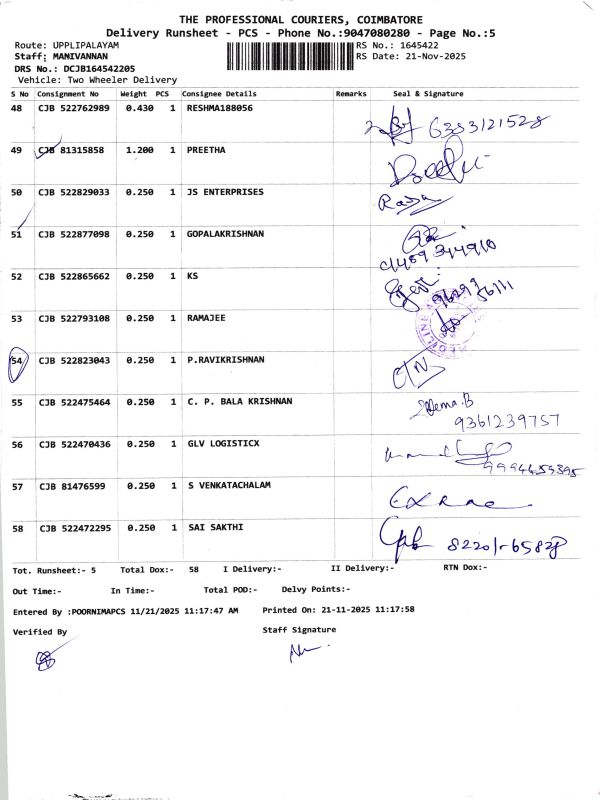 THE PROFESSIONAL COURIERS, COIMBATORE
Delivery Runsheet - PCS - Phone No.:9047080280 - Page No.:5
Route: UPPLIPALAYAM RS No.: 1645422
Staff: MANIVANNAN RS Date: 21-Nov-2025
DRS No.: DCJB164542205
Vehicle: Two Wheeler Delivery
S No Consignment No Weight PCS Consignee Details Remarks Seal & Signature
48 CJB 522762989 0.430 1 RESHMA188056
6383121528
49 CJB 81315858 1.200 1 PREETHA
50 CJB 522829033 0.250 1 JS ENTERPRISES
51 CJB 522877098 0.250 1 GOPALAKRISHNAN
52 CJB 522865662 0.250 1 KS
53 CJB 522793108 0.250 1 RAMAJEE
54 CJB 522823043 0.250 1 P.RAVIKRISHNAN
55 CJB 522475464 0.250 1 C. P. BALA KRISHNAN
Hema.B
9361239757
56 CJB 522470436 0.250 1 GLV LOGISTICX
57 CJB 81476599 0.250 1 S VENKATACHALAM
58 CJB 522472295 0.250 1 SAI SAKTHI
Tot. Runsheet:- 5 Total Dox:- 58 I Delivery:- II Delivery:- RTN Dox:-
Out Time:- In Time:- Total POD:- Delvy Points:-
Entered By :POORNIMAPCS 11/21/2025 11:17:47 AM Printed On: 21-11-2025 11:17:58
Verified By Staff Signature